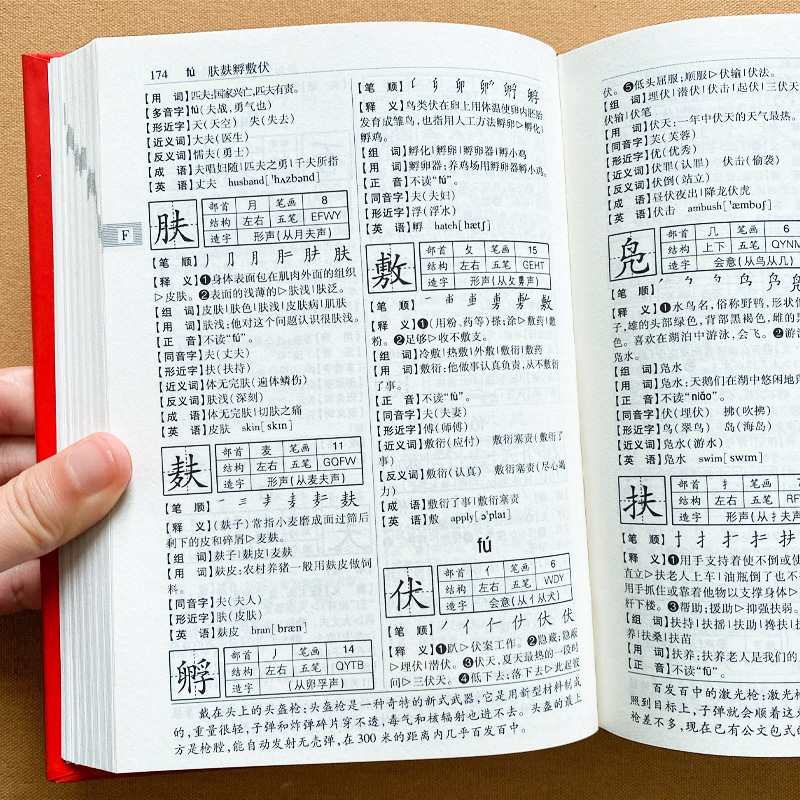 174 fú 肤麸孵敷伏
【用　词】匹夫:国家兴亡,匹夫有责。
【多音字】fú(夫战,勇气也)
【形近字】天(天空)　失(失去)
【近义词】大夫(医生)
【反义词】懦夫(勇士)
【成　语】夫唱妇随|匹夫之勇|千夫所指
【英　语】丈夫　husband[ˈhʌzbənd]
肤 部首 月 笔画 8
结构 左右 五笔 EFWY
造字 形声(从月夫声)
【笔　顺】
【释　义】❶身体表面包在肌肉外面的组织
▷皮肤。❷表面的浅薄的▷肤浅|肤泛。
【组　词】皮肤|肤色|肤浅|皮肤病|肌肤
【用　词】肤浅:他对这个问题认识很肤浅。
【正　音】不读“fú”。
【同音字】夫(丈夫)
【形近字】扶(扶持)
【近义词】体无完肤(遍体鳞伤)
【反义词】肤浅(深刻)
【成　语】体无完肤|切肤之痛
【英　语】皮肤　skin[skɪn]
F
麸 部首 麦 笔画 11
结构 左右 五笔 GQFW
造字 形声(从麦夫声)
【笔　顺】
【释　义】(麸子)常指小麦磨成面过筛后
剩下的皮和碎屑▷麦麸。
【组　词】麸子|麸皮|麦麸
【用　词】麸皮:农村养猪一般用麸皮做饲
料。
【同音字】夫(夫人)
【形近字】肤(皮肤)
【英　语】麸皮　bran[bræn]
孵 部首 丿 笔画 14
结构 左右 五笔 QYTB
造字 (从卵孚声)
【笔　顺】
【释　义】鸟类伏在卵上用体温使卵内胚胎
发育成雏鸟,也指用人工方法孵卵▷孵化|
孵鸡。
【组　词】孵化|孵卵|孵卵器|孵小鸡
【用　词】孵卵器:养鸡场用孵卵器孵小鸡。
【正　音】不读“fú”。
【同音字】夫(夫妇)
【形近字】浮(浮水)
【英　语】孵　hatch[hætʃ]
敷 部首 攵 笔画 15
结构 左右 五笔 GEHT
造字 形声(从攵旉声)
【笔　顺】
【释　义】❶(用粉、药等)搽;涂▷敷药|敷
粉。❷足够▷收不敷支。
【组　词】冷敷|热敷|外敷|敷衍|敷药
【用　词】敷衍:他做事认真负责,从不敷衍
了事。
【正　音】不读“fú”。
【同音字】夫(夫妻)
【形近字】傅(师傅)
【近义词】敷衍(应付)　敷衍塞责(敷衍了
事)
【反义词】敷衍(认真)　敷衍塞责(尽心竭
力)
【成　语】敷衍了事|敷衍塞责
【英　语】敷　apply[əˈplaɪ]
fú
伏 部首 亻 笔画 6
结构 左右 五笔 WDY
造字 会意(从亻从犬)
【笔　顺】
【释　义】❶趴▷伏案工作。❷隐藏;隐蔽
▷埋伏|潜伏。❸伏天,夏天最热的一段时
间▷三伏天。❹低下去;落下去▷此起彼
戴在头上的头盔枪:头盔枪是一种奇特的新式武器,它是用新型材料制成
的,重量很轻,子弹和炸弹碎片穿不透,毒气和核辐射也进不去。头盔的最上
方是枪膛,能自动发射无壳弹,在300米的距离内几乎百发百中。
伏。❺低头屈服;顺服▷伏输|伏法。
【组　词】埋伏|潜伏|伏击|起伏|三伏天
伏输|伏笔
【用　词】伏天:一年中伏天的天气最热。
【同音字】芙(芙蓉)
【形近字】优(优秀)
【近义词】伏罪(认罪)　伏击(偷袭)
【反义词】伏倒(站立)
【成　语】昼伏夜出|降龙伏虎
【英　语】伏击　ambush[ˈæmbuʃ]
凫 部首 几 笔画 6
结构 上下 五笔 QYNM
造字 会意(从鸟从几)
【笔　顺】
【释　义】❶水鸟名,俗称野鸭,形状
子,雄的头部绿色,背部黑褐色,雌的黑
色。喜欢在湖泊中游泳,会飞。❷游
凫水。
【组　词】凫水
【用　词】凫水:天鹅们在湖中悠闲地
【正　音】不读“niǎo”。
【同音字】伏(埋伏)　拂(吹拂)
【形近字】鸟(翠鸟)　岛(海岛)
【近义词】凫水(游水)
【英　语】凫水　swim[swɪm]
扶 部首 扌 笔画 7
结构 左右 五笔 RF
造字 形声(从扌夫声
【笔　顺】
【释　义】❶用手支持着使不倒或使
直立▷扶老人上车|油瓶倒了也不
用手抓住或靠着他物以支撑身体▷
杆下楼。❸帮助;援助▷抑强扶弱。
【组　词】扶持|扶摇|扶助|搀扶|扶
养|扶桑|扶苗
【用　词】扶养:扶养老人是我们的
【正　音】不读“fú”。
百发百中的激光枪:激光枪
照到目标上,子弹就会顺着这
枪差不多,现在已有公文包式的